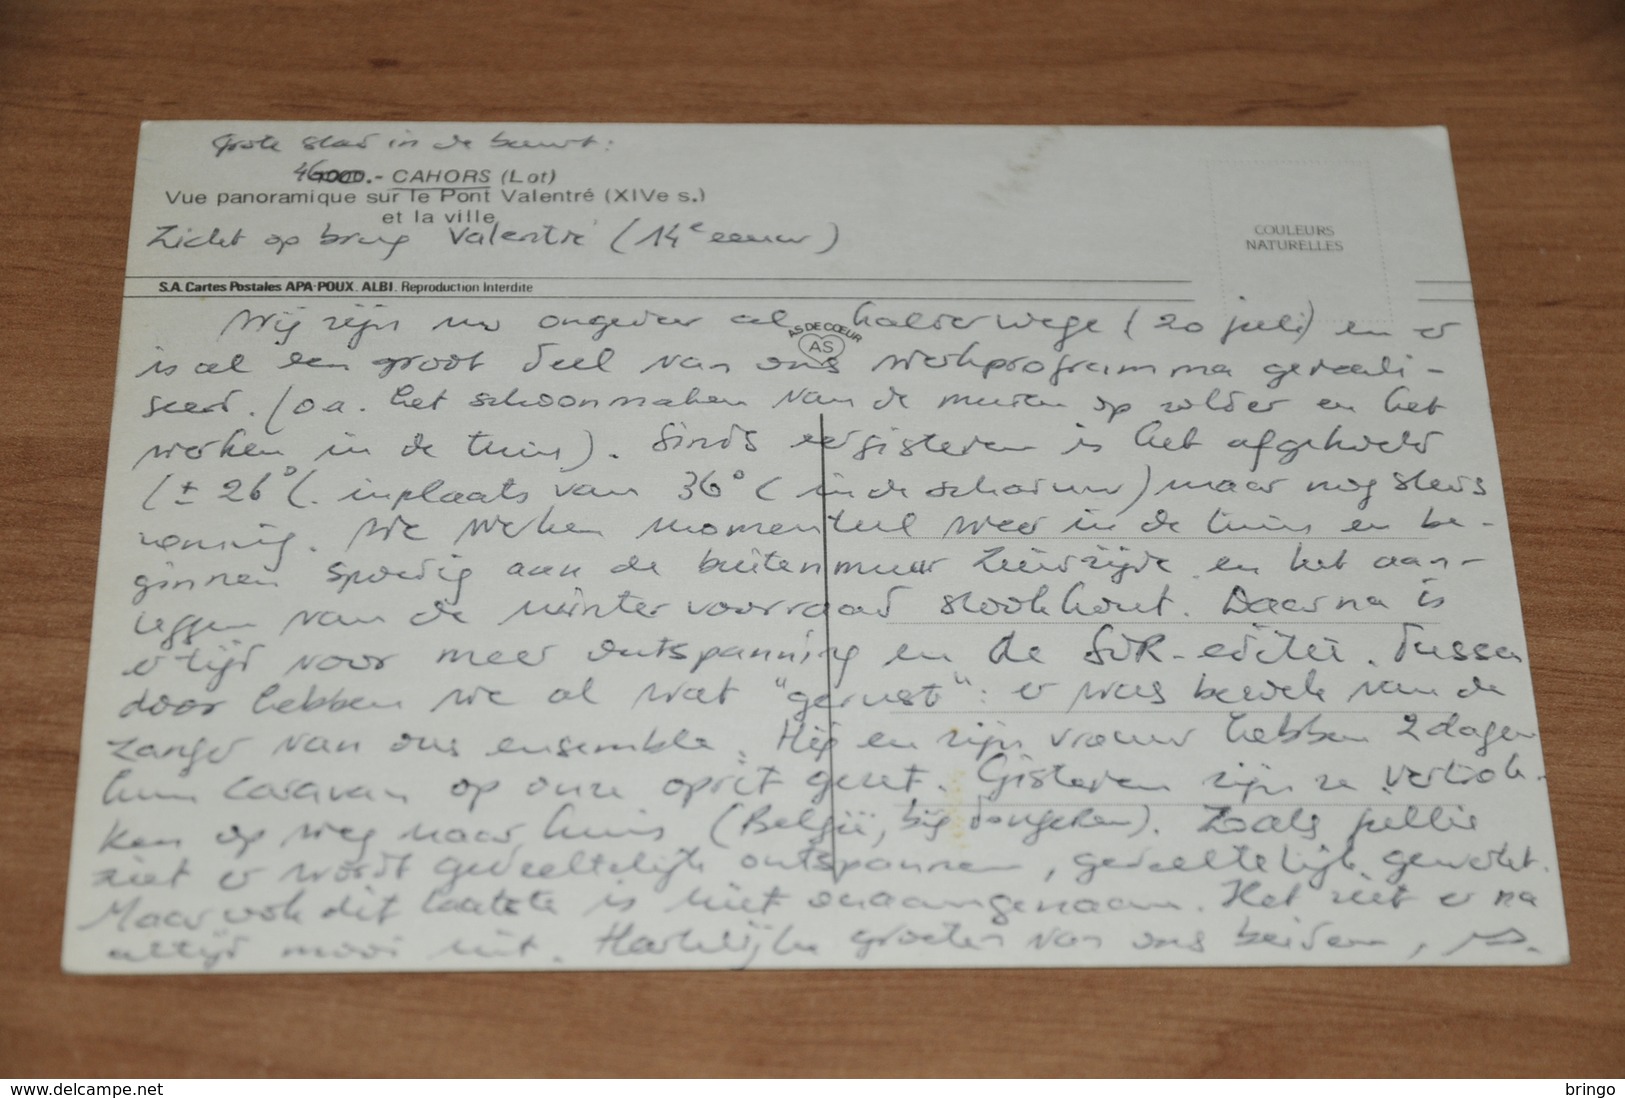 Grote stad in de buurt:
46000.- CAHORS (Lot)
Vue panoramique sur le Pont Valentré (XIVe s.)
et la ville
Zicht op brug Valentré (14e eeuw)
COULEURS
NATURELLES
S.A. Cartes Postales APA-POUX. ALBI. Reproduction Interdite
AS DE CŒUR
AS
Wij zijn nu ongeveer al halverwege (20 juli) en er
is al een groot deel van ons werkprogramma gereali-
seerd. (o.a. het schoonmaken van de muren op zolder en het
werken in de tuin). Sinds eergisteren is het afgekoeld
(± 26°C. inplaats van 36°C in de schaduw) maar nog steeds
zonnig. We werken momenteel weer in de tuin en be-
ginnen spoedig aan de buitenmuur zuidzijde en het aan-
leggen van de wintervoorraad stookhout. Daarna is
er tijd voor meer ontspanning en de editie. Tussen
door hebben we al wat "gerust": er was bezoek van de
zanger van ons ensemble. Hij en zijn vrouw hebben 2 dagen
hun caravan op onze oprit gezet. Gisteren zijn ze vertrok-
ken op weg naar huis (België, bij Tongeren). Zoals jullie
ziet er wordt gedeeltelijk ontspannen, gedeeltelijk gewerkt.
Maar ook dit laatste is niet onaangenaam. Het ziet er na
altijd mooi uit. Hartelijke groeten van ons beiden,
delcampe.net
bringo